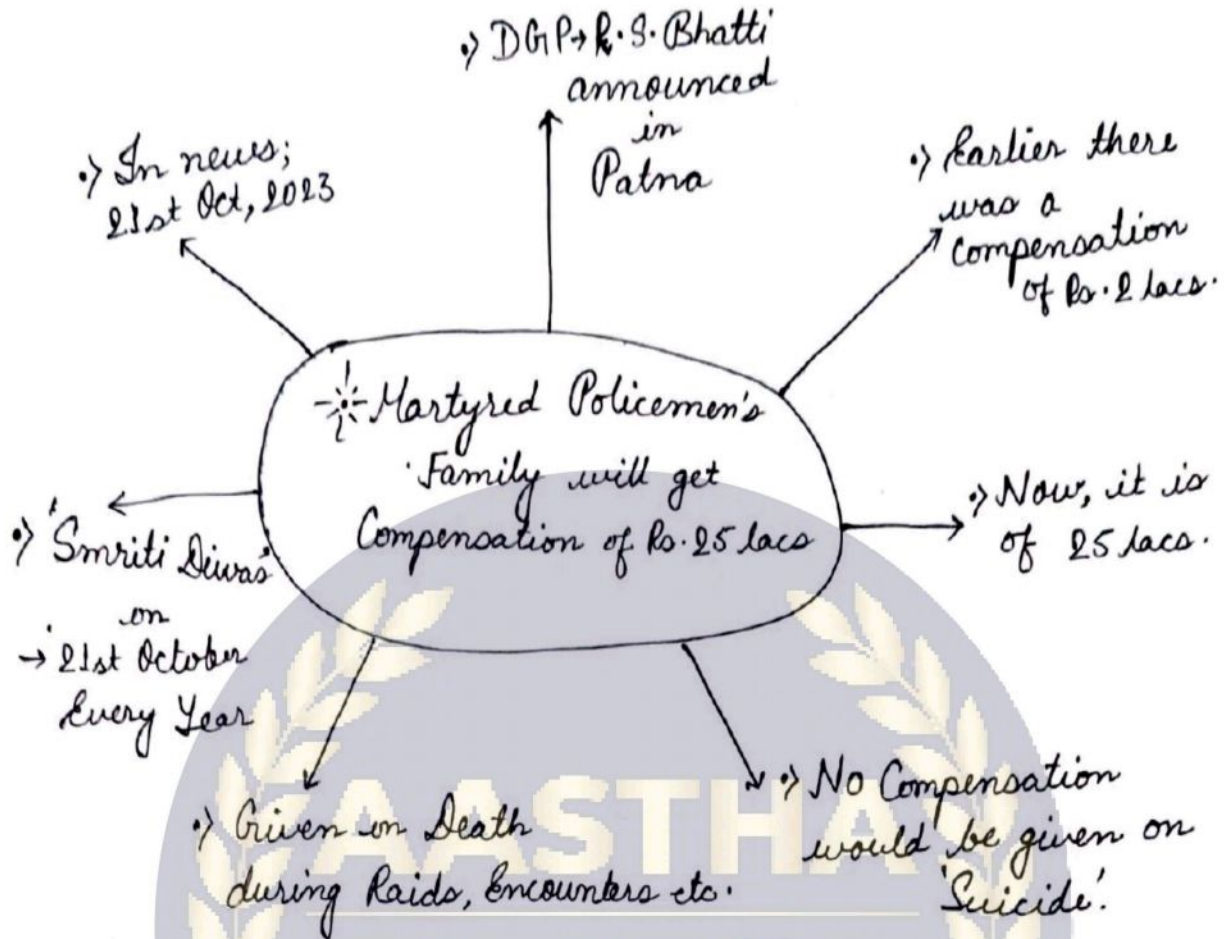 •› DGP→ R.S. Bhatti
announced
in
Patna
•› In news;
21st Oct, 2023
•› Earlier there
was a
compensation
of Rs. 2 lacs.
Martyred Policemen's
Family will get
Compensation of Rs. 25 lacs
•› Now, it is
of 25 lacs.
•› 'Smriti Diwas'
on
→ 21st October
Every Year
•› Given on Death
during Raids, Encounters etc.
•› No Compensation
would be given on
'Suicide'.
AASTHA